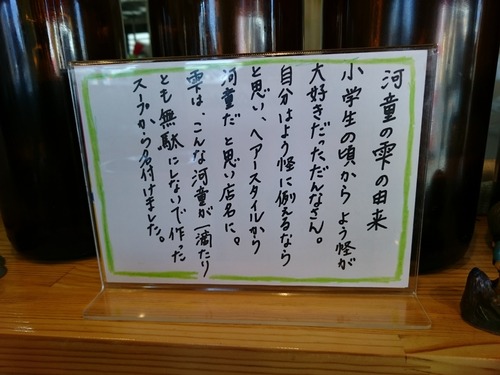 河童の雫の由来
小学生の頃からよう怪が
大好きだっただんなさん。
自分はよう怪に例えるなら
と思い、ヘアースタイルから
河童だと思い店名に。
雫は、こんな河童が一滴たり
とも無駄にしないで作った
スープから名付けました。